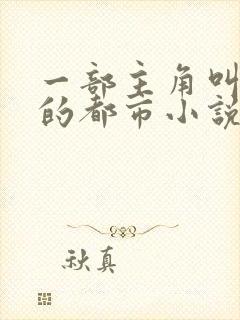 一部主角叫
的都市小說
秋真